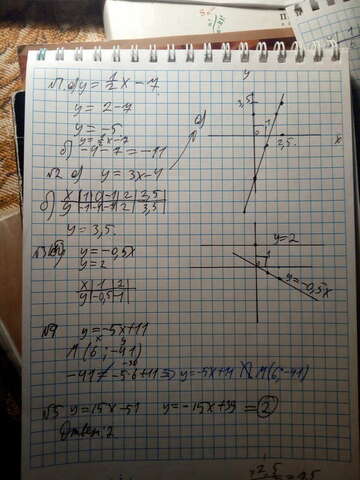 №1. а) y = 1/2 x − 7
y = 2−7
y = −5
y = 1/2 x − 7
б) −4−7 = −11
№2 а) y = 3x−4
б) x | 1 | 0 | −1 | 2 | 3,5
y | −1 | −4 | −7 | 2 | 3,5
y = 3,5.
y = −0,5x
y = 2
x | 1 | 2
y | −0,5 | −1
№9 y = −5x+11
x y
М(6; −41)
−30
y = −5x+11
М(6; −41)
№5 y = 15x−51 y = −15x+39 = 2
Ответ: 2
а)
y
3,5
0
1
2,5.
x
y=2
1
y=−0,5x